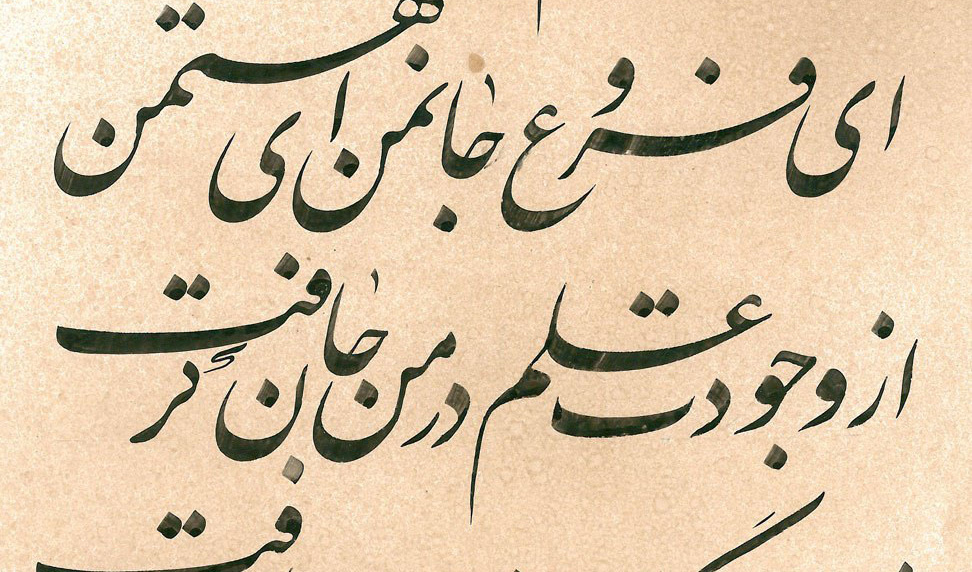 ای فروغ جان من ای هست من
از وجودت عقلم در من جان گرفت